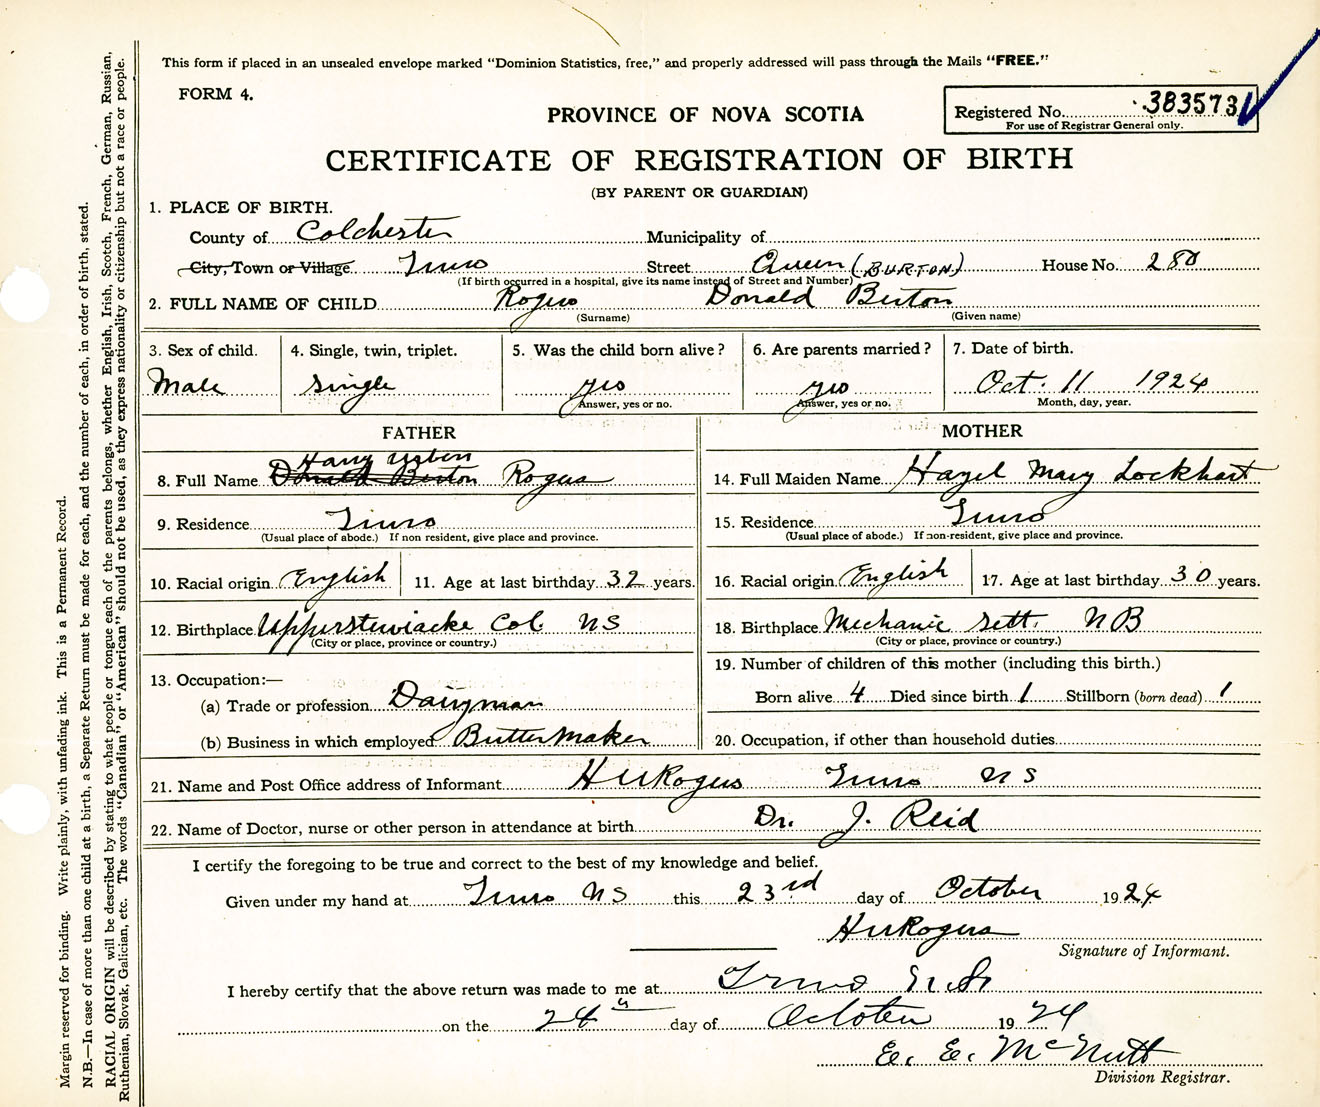 This form if placed in an unsealed envelope marked "Dominion Statistics, free," and properly addressed will pass through the Mails "FREE."
FORM 4.
PROVINCE OF NOVA SCOTIA
Registered No. 383573
For use of Registrar General only.
CERTIFICATE OF REGISTRATION OF BIRTH
(BY PARENT OR GUARDIAN)
1. PLACE OF BIRTH.
County of Colchester Municipality of
City, Town or Village Truro Street Queen (BURTON) House No. 280
(If birth occurred in a hospital, give its name instead of Street and Number)
2. FULL NAME OF CHILD Rogers Donald Burton
(Surname) (Given name)
3. Sex of child. 4. Single, twin, triplet. 5. Was the child born alive? 6. Are parents married? 7. Date of birth.
Male single yes yes Oct. 11 1924
Answer, yes or no. Answer, yes or no. Month, day, year.
FATHER MOTHER
Harry
8. Full Name Donald Burton Rogers 14. Full Maiden Name Hazel Mary Lockhart
9. Residence Truro 15. Residence Truro
(Usual place of abode.) If non resident, give place and province. (Usual place of abode.) If non-resident, give place and province.
10. Racial origin English 11. Age at last birthday 32 years. 16. Racial origin English 17. Age at last birthday 30 years.
12. Birthplace Upperstewiacke Col. NS 18. Birthplace Mechanic Sett. NB
(City or place, province or country.) (City or place, province or country.)
19. Number of children of this mother (including this birth.)
13. Occupation:—
(a) Trade or profession Dairyman Born alive 4 Died since birth 1 Stillborn (born dead) 1
(b) Business in which employed Butter Maker 20. Occupation, if other than household duties
21. Name and Post Office address of Informant HURogers Truro NS
22. Name of Doctor, nurse or other person in attendance at birth Dr. J. Reid
I certify the foregoing to be true and correct to the best of my knowledge and belief.
Given under my hand at Truro NS this 23rd day of October 1924
HURogers
Signature of Informant.
I hereby certify that the above return was made to me at Truro N.S.
on the 24th day of October 1924
E. E. McNutt
Division Registrar.
Margin reserved for binding. Write plainly, with unfading ink. This is a Permanent Record.
N.B.—In case of more than one child at a birth, a Separate Return must be made for each, and the number of each, in order of birth, stated.
RACIAL ORIGIN will be described by stating to what people or tongue each of the parents belongs, whether English, Irish, Scotch, French, German, Russian,
Ruthenian, Slovak, Galician, etc. The words "Canadian" or "American" should not be used, as they express nationality or citizenship but not a race or people.